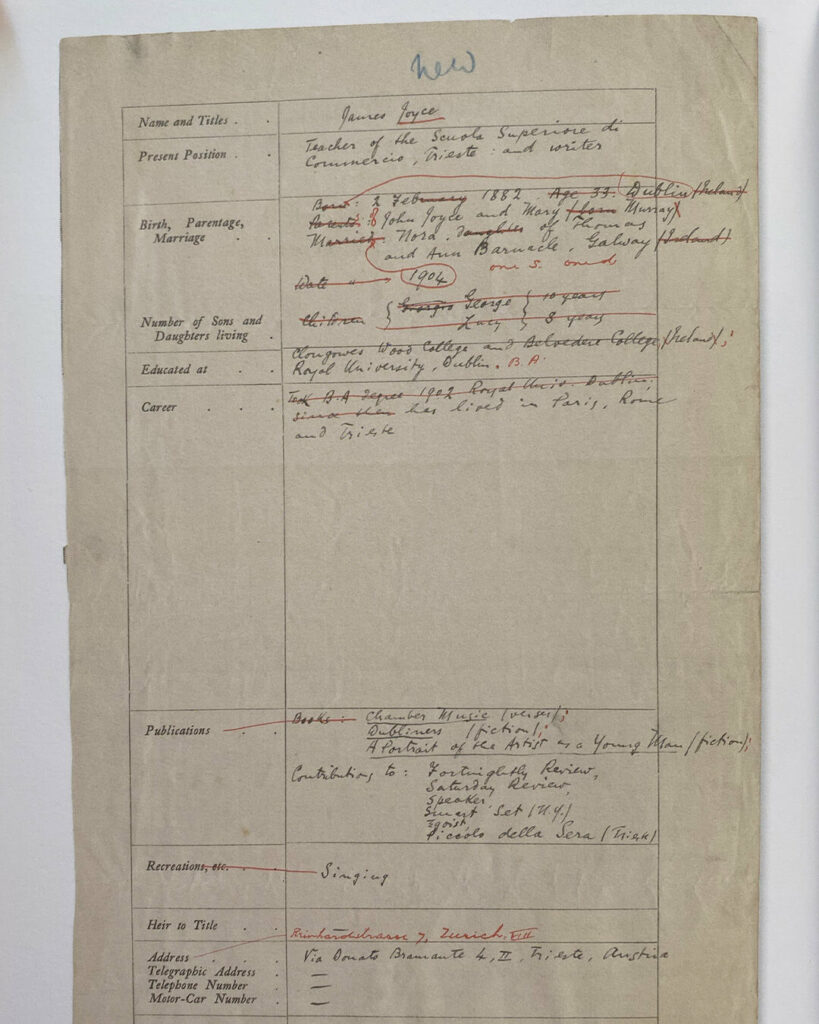 new
Name and Titles . . James Joyce
Present Position . . Teacher of the Scuola Superiore di
Commercio, Trieste : and writer
Birth, Parentage,
Marriage . .
Born : 2 February 1882 . Age 33. Dublin (Ireland)
Parents : John Joyce and Mary (born Murray)
Married. Nora. daughter of Thomas
and Ann Barnacle, Galway (Ireland)
one s. one d
Date " 1904
Number of Sons and
Daughters living .
Children { Giorgio George } 10 years
Lucy } 8 years
Educated at . . Clongowes Wood College and Belvedere College (Ireland);
Royal University, Dublin. B.A.
Career . . . Took B.A degree 1902 Royal Univ. Dublin;
since then has lived in Paris, Rome
and Trieste
Publications . . Books : Chamber Music (verses);
Dubliners (fiction);
A Portrait of the Artist as a Young Man (fiction);
Contributions to : Fortnightly Review,
Saturday Review,
Speaker
Smart Set (N.Y.)
Egoist
Piccolo della Sera (Trieste)
Recreations, etc. . . Singing
Heir to Title . .
Reinhardstrasse 7, Zurich. VIII
Address . . . Via Donato Bramante 4, II, Trieste, Austria
Telegraphic Address . —
Telephone Number . —
Motor-Car Number . —